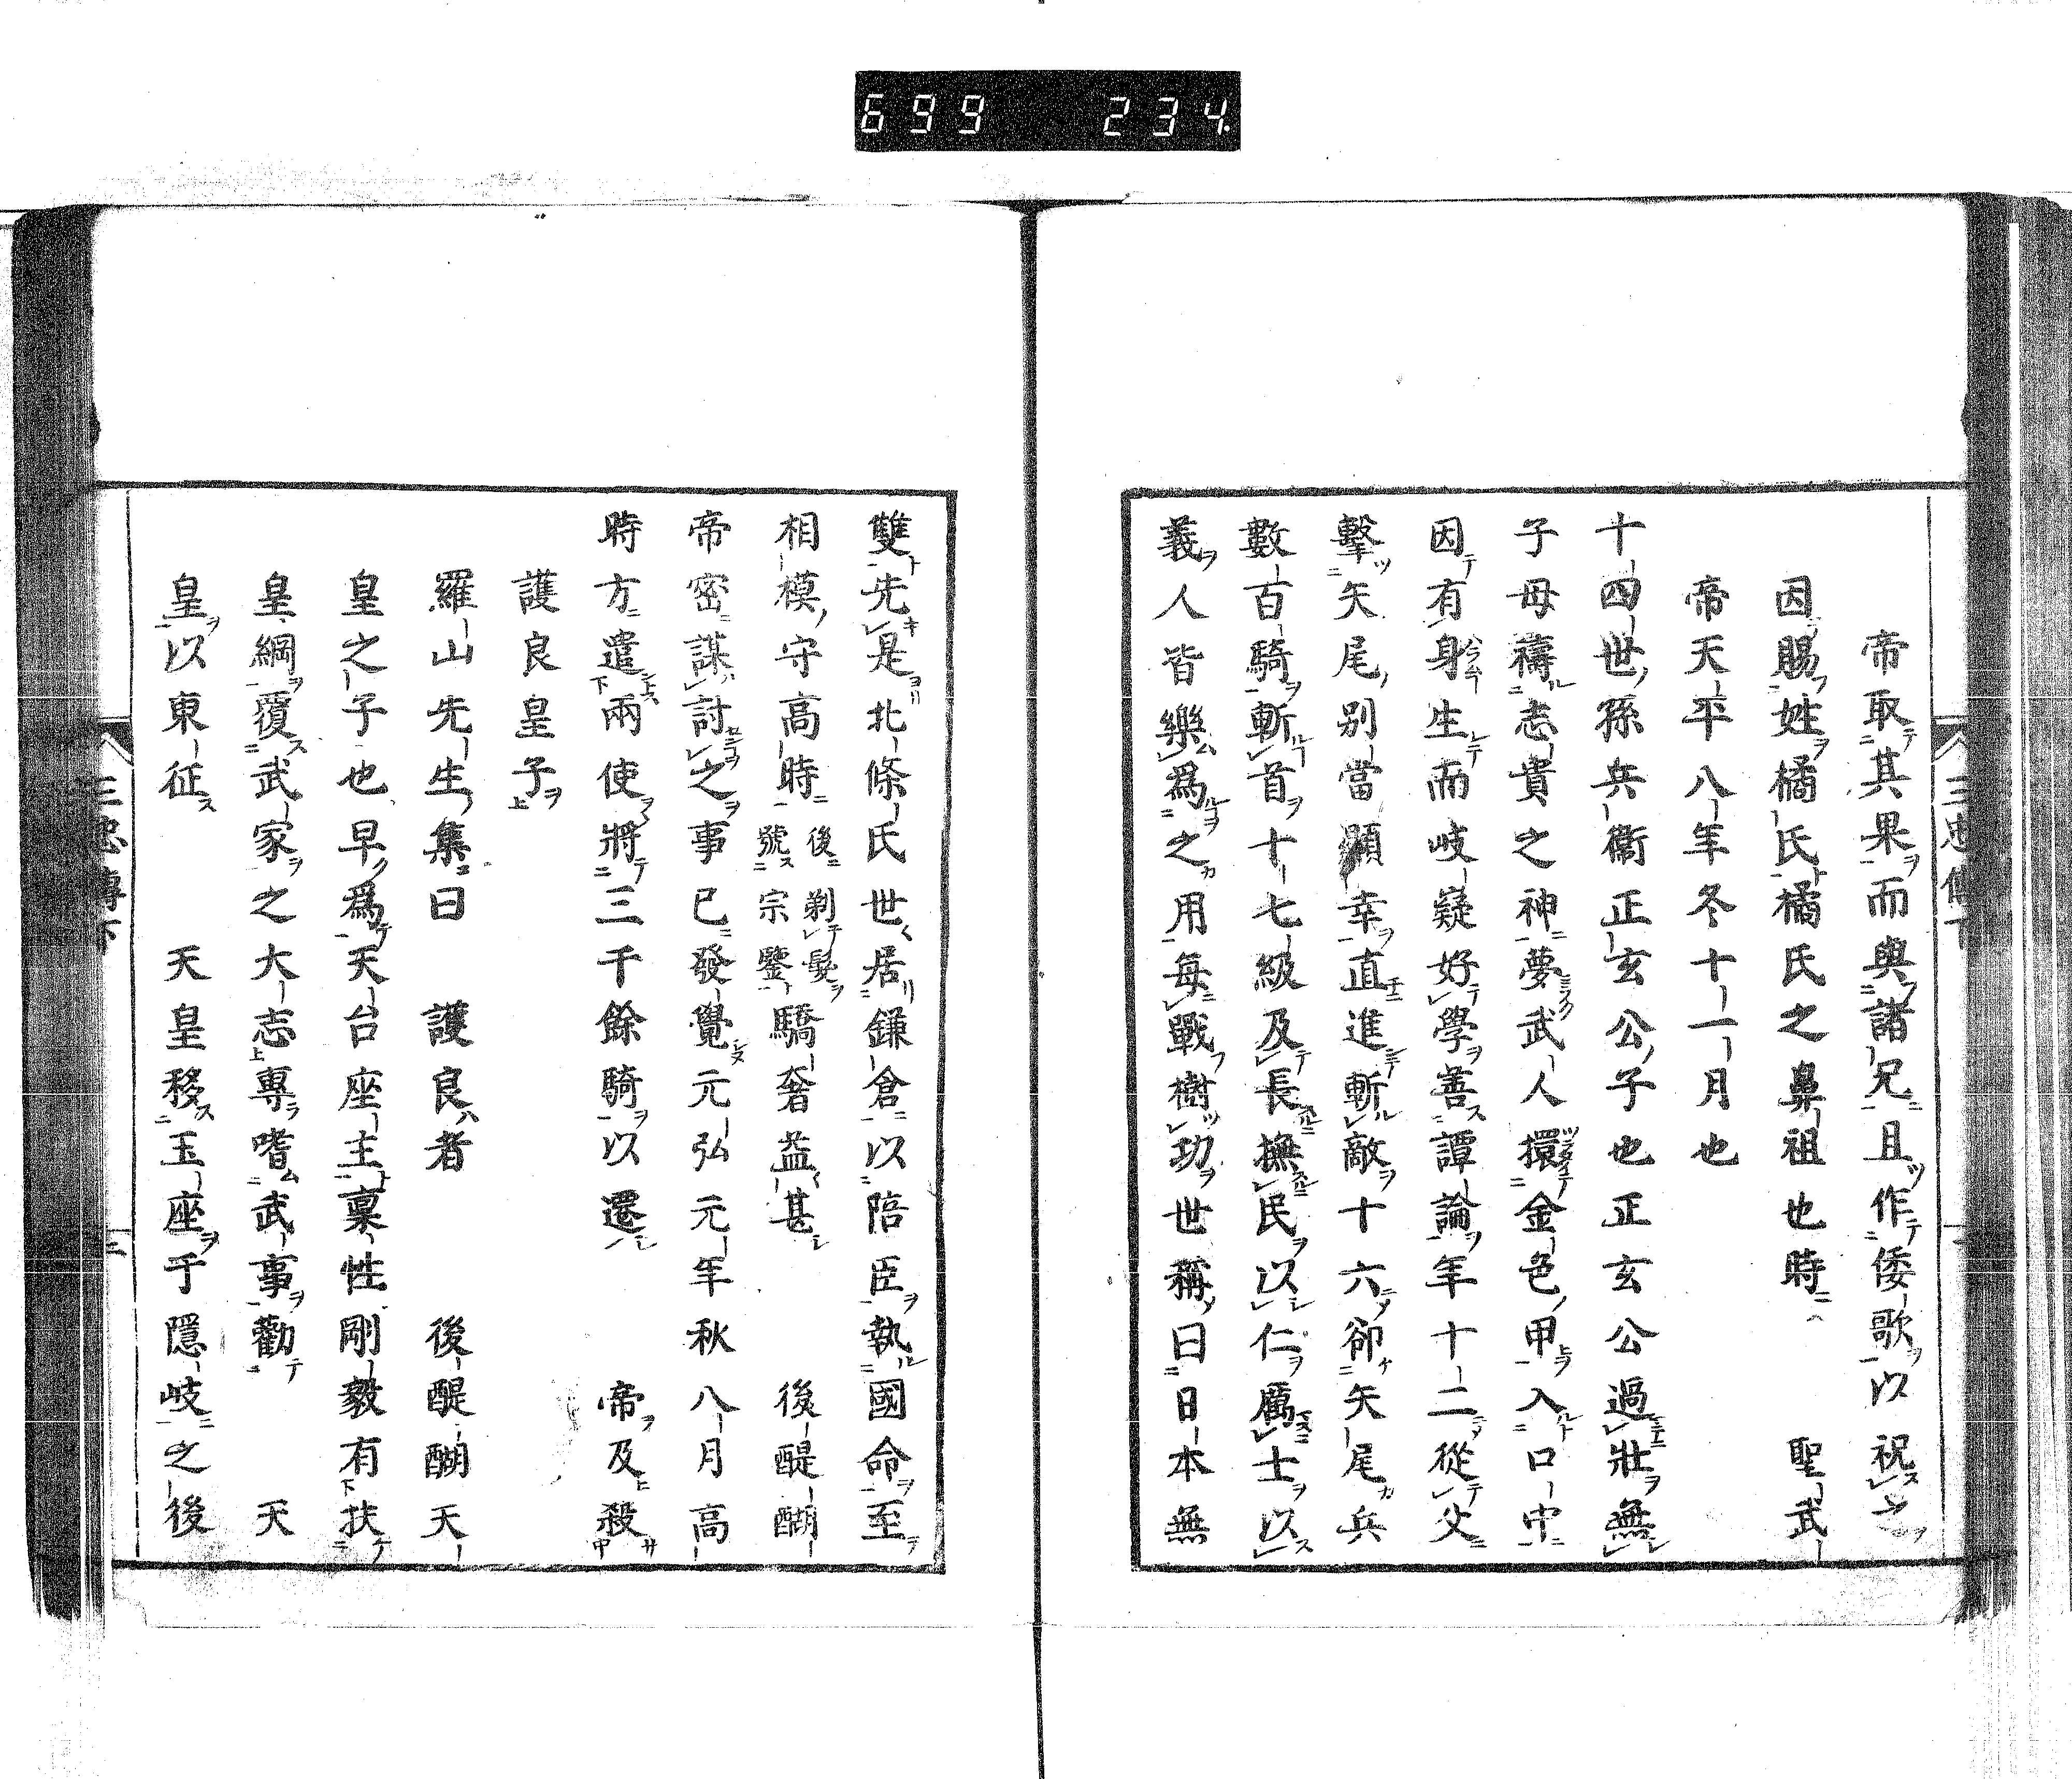 699 234
帝取其果而與諸兄且作倭歌以祝之
因賜姓橘氏橘氏之鼻祖也時 聖武
帝天平八年冬十一月也
十四世孫兵衞正玄公子也正玄公過壯無
子母禱志貴之神夢武人擐金色甲入口中
因有身生而岐嶷好學善譚論年十二從父
擊矢尾別當顯幸直進斬敵十六卻矢尾兵
數百騎斬首十七級及長撫民以仁厲士以
義人皆樂爲之用每戰樹功世稱曰日本無
雙先是北條氏世居鎌倉以陪臣執國命至
相模守高時後剃髮號宗鑒驕奢益甚 後醍醐
帝密謀討之事已發覺元弘元年秋八月高
時方遣兩使將三千餘騎以還 帝及殺
護良皇子
羅山先生集曰 護良者 後醍醐天
皇之子也早爲天台座主稟性剛毅有扶
皇綱覆武家之大志專嗜武事勸 天
皇以東征 天皇移玉座于隱岐之後
三忠傳下